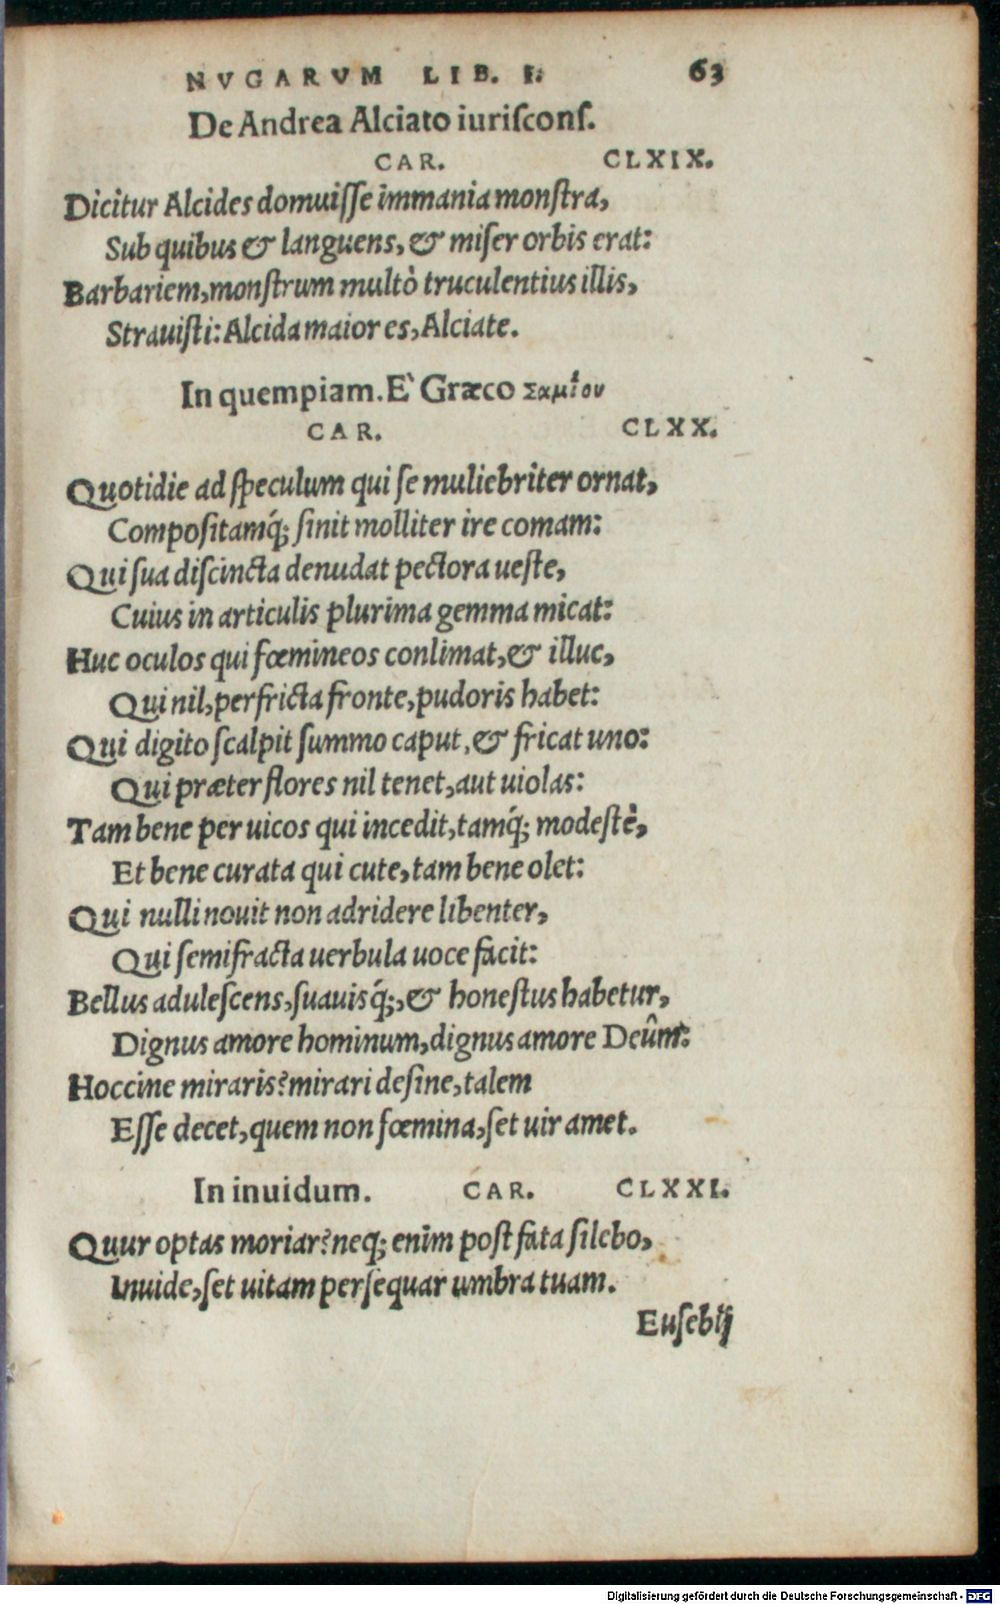 NVGARVM LIB. I. 63
De Andrea Alciato iuriſconſ.
CAR. CLXIX.
Dicitur Alcides domuiſſe immania monſtra,
Sub quibus & languens, & miſer orbis erat:
Barbariem, monſtrum multò truculentius illis,
Strauiſti: Alcida maior es, Alciate.
In quempiam. E` Græco Σαμίου
CAR. CLXX.
Quotidie ad ſpeculum qui ſe muliebriter ornat,
Compoſitamq́; ſinit molliter ire comam:
Qui ſua diſcincta denudat pectora ueſte,
Cuius in articulis plurima gemma micat:
Huc oculos qui fœmineos conlimat, & illuc,
Qui nil, perfricta fronte, pudoris habet:
Qui digito ſcalpit ſummo caput, & fricat uno:
Qui præter flores nil tenet, aut uiolas:
Tam bene per uicos qui incedit, tamq́; modeſtè,
Et bene curata qui cute, tam bene olet:
Qui nulli nouit non adridere libenter,
Qui ſemifracta uerbula uoce facit:
Bellus aduleſcens, ſuauisq́;, & honeſtus habetur,
Dignus amore hominum, dignus amore Deûm:
Hoccine miraris? mirari deſine, talem
Eſſe decet, quem non fœmina, ſet uir amet.
In inuidum. CAR. CLXXI.
Quur optas moriar? neq; enim poſt fata ſilebo,
Inuide, ſet uitam perſequar umbra tuam.
Euſebij
Digitalisierung gefördert durch die Deutsche Forschungsgemeinschaft - DFG